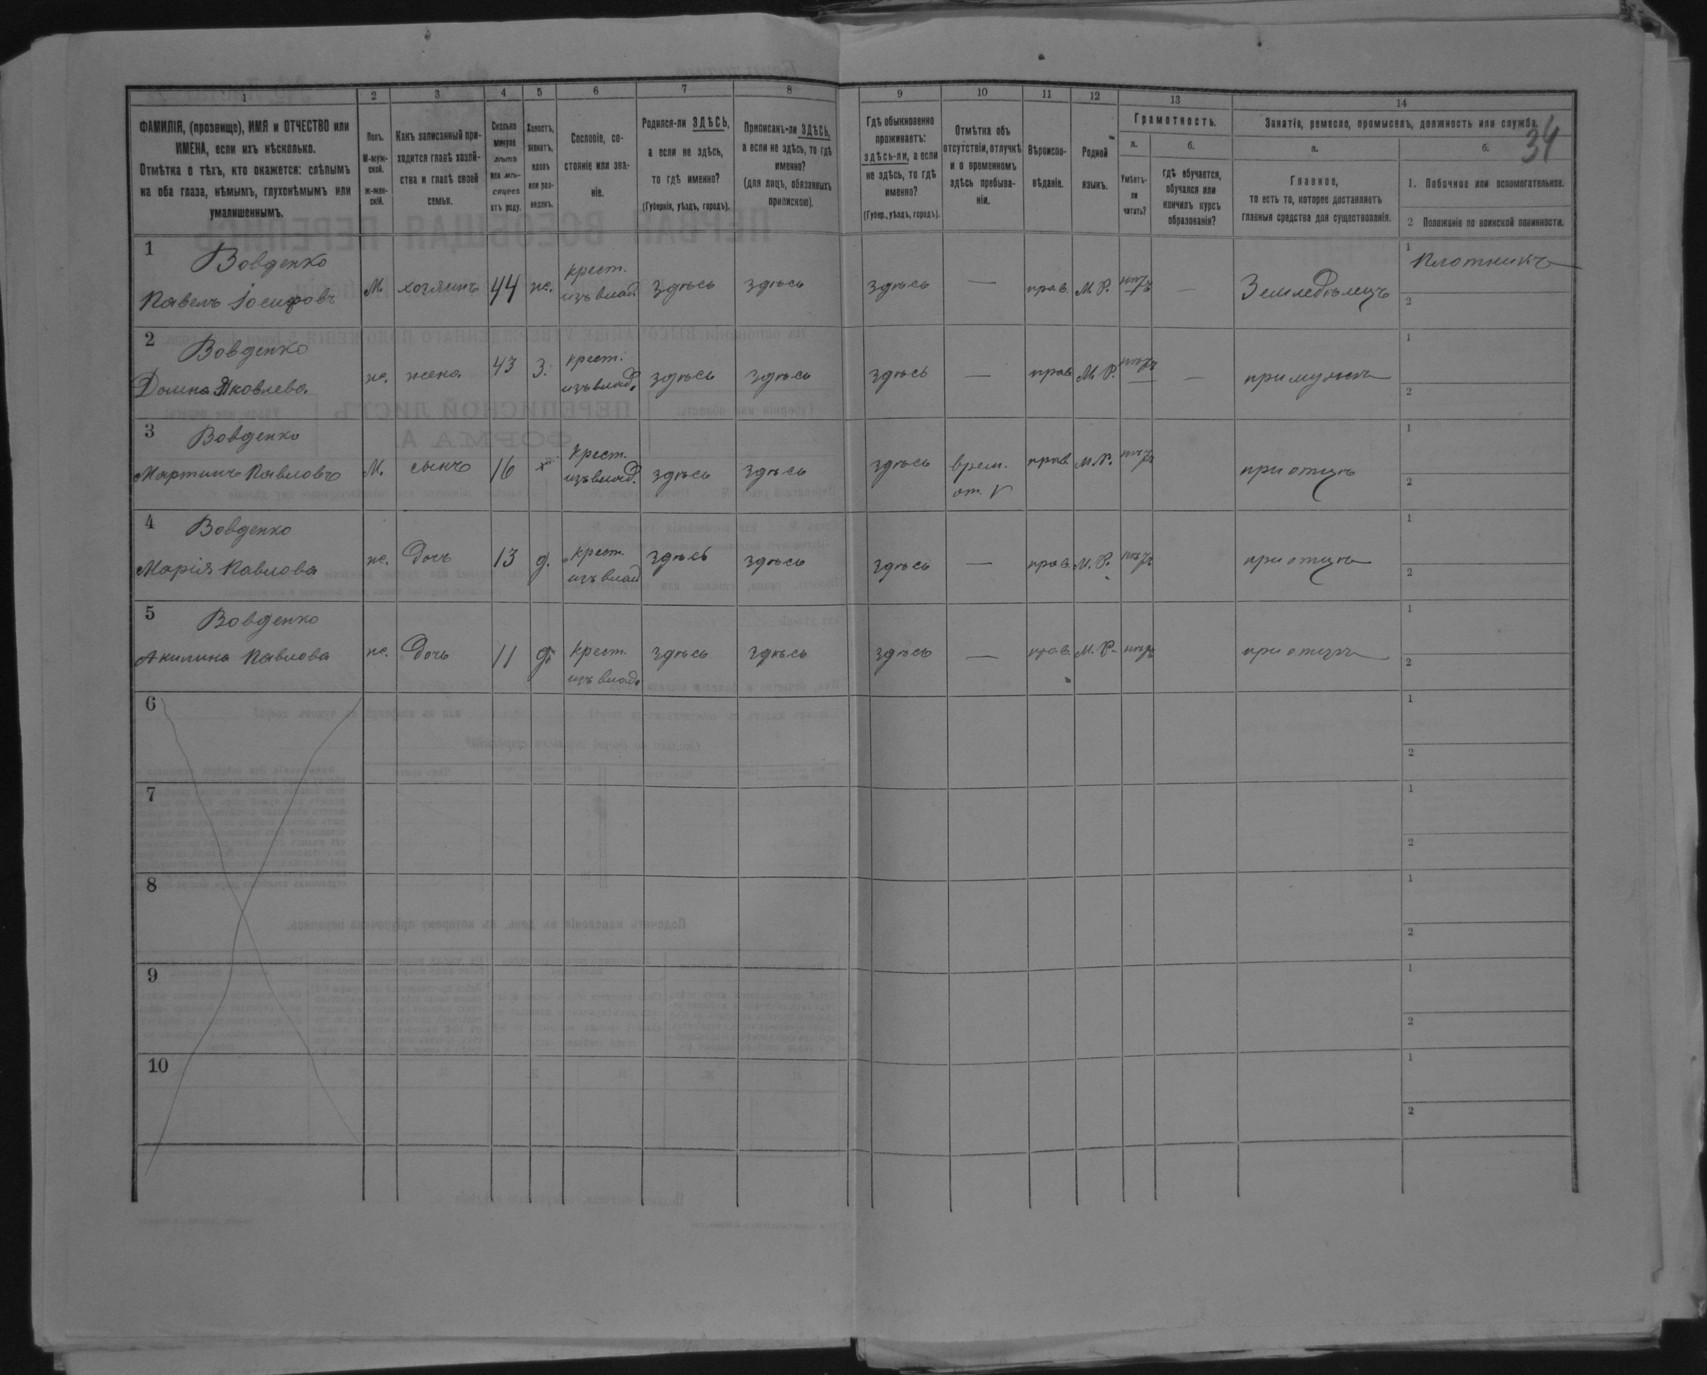 34
1 2 3 4 5 6 7 8 9 10 11 12 13 14
ФАМИЛІЯ, (прозвище), ИМЯ и ОТЧЕСТВО или
ИМЕНА, если ихъ нѣсколько.
Отмѣтка о тѣхъ, кто окажется: слѣпымъ
на оба глаза, нѣмымъ, глухонѣмымъ или
умалишеннымъ.
Полъ.
М-муж-
ской.
ж-жен-
скій.
Какъ записанный при-
ходится главѣ хозяй-
ства и главѣ своей
семьи.
Сколько
минуло
лѣтъ
или мѣ-
сяцевъ
отъ роду.
Холостъ,
женатъ,
вдовъ
или раз-
веденъ.
Сословіе, со-
стояніе или зва-
ніе.
Родился-ли ЗДѢСЬ,
а если не здѣсь,
то гдѣ именно?
(Губернія, уѣздъ, городъ).
Приписанъ-ли ЗДѢСЬ,
а если не здѣсь, то гдѣ
именно?
(для лицъ, обязанныхъ
припискою).
Гдѣ обыкновенно
проживаетъ:
здѣсь-ли, а если
не здѣсь, то гдѣ
именно?
(Губер., уѣздъ, городъ).
Отмѣтка объ
отсутствіи, отлучкѣ
и о временномъ
здѣсь пребыва-
ніи.
Вѣроиспо-
вѣданіе.
Родной
языкъ.
Грамотность.
а.
Умѣетъ-
ли
читать?
б.
гдѣ обучается,
обучался или
кончилъ курсъ
образованія?
Занятіе, ремесло, промыселъ, должность или служба.
а.
Главное,
то есть то, которое доставляетъ
главныя средства для существованія.
б.
1. Побочное или вспомогательное.
2 Положеніе по воинской повинности.
1 Вовденко
Павелъ Іосифовъ М. хозяинъ 44 ж. крест. изъ влад. здѣсь здѣсь здѣсь — прав. М. Р. нѣтъ — Земледѣлецъ 1 Плотникъ
2
2 Вовденко
Домна Яковлева ж. жена 43 З. крест. изъ влад. здѣсь здѣсь здѣсь — прав. М. Р. нѣтъ — при мужѣ 1
2
3 Вовденко
Мартинъ Павловъ М. сынъ 16 х. крест. изъ влад. здѣсь здѣсь здѣсь врем. от. V прав. М. Р. нѣтъ при отцѣ 1
2
4 Вовденко
Марія Павлова ж. дочь 13 д. крест. изъ влад здѣсь здѣсь здѣсь — прав. М. Р. нѣтъ при отцѣ 1
2
5 Вовденко
Акилина Павлова ж. дочь 11 д. крест. изъ влад. здѣсь здѣсь здѣсь — прав. М. Р. нѣтъ при отцѣ 1
2
6 1
2
7 1
2
8 1
2
9 1
2
10 1
2